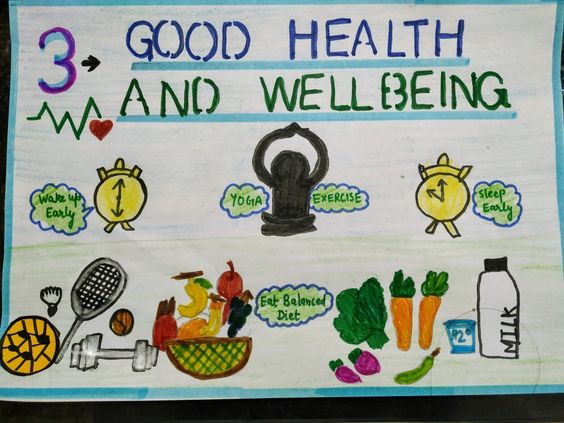 3 → GOOD HEALTH
AND WELLBEING
Wake up
Early
YOGA
EXERCISE
Sleep
Early
Eat Balanced
Diet
MILK